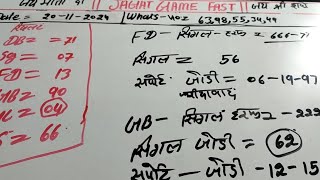 जय माता दी || JAGIAT GAME FAST || जय श्री
Date = 20-11-2024 Whats-no= 63,98,55,34,49
DB = 71
SG = 07
FD = 13
GB = 90
GL = 04
DS = 66
FD - सिंगल - हरूफ = 666-7
सिंगल = 56
सपोर्ट जोडी = 06-19-97
फरीदाबाद
GB - सिंगल हरूफ - 222
सिंगल जोडी = 62
सपोर्ट - जोडी - 12-15